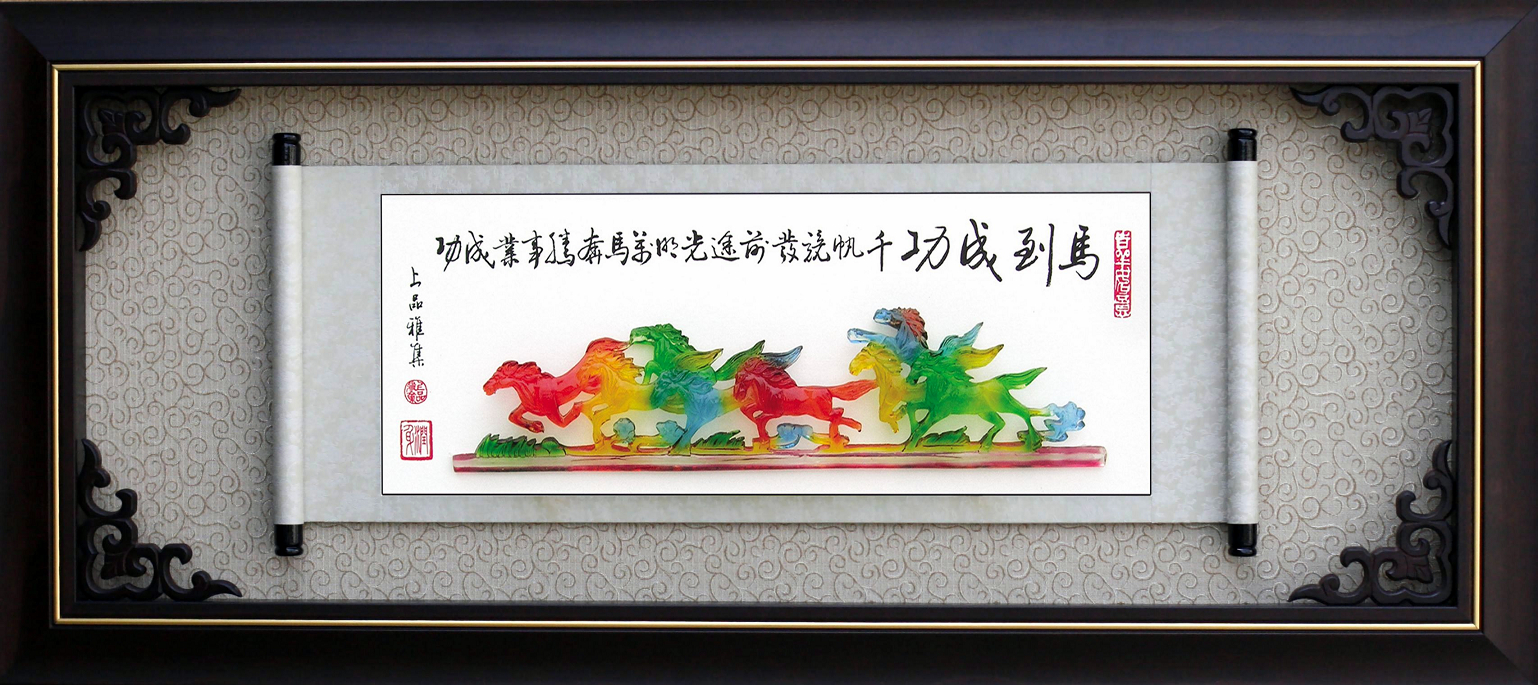 馬到成功千帆競發前途光明萬馬奔騰事業成功
上品雅集